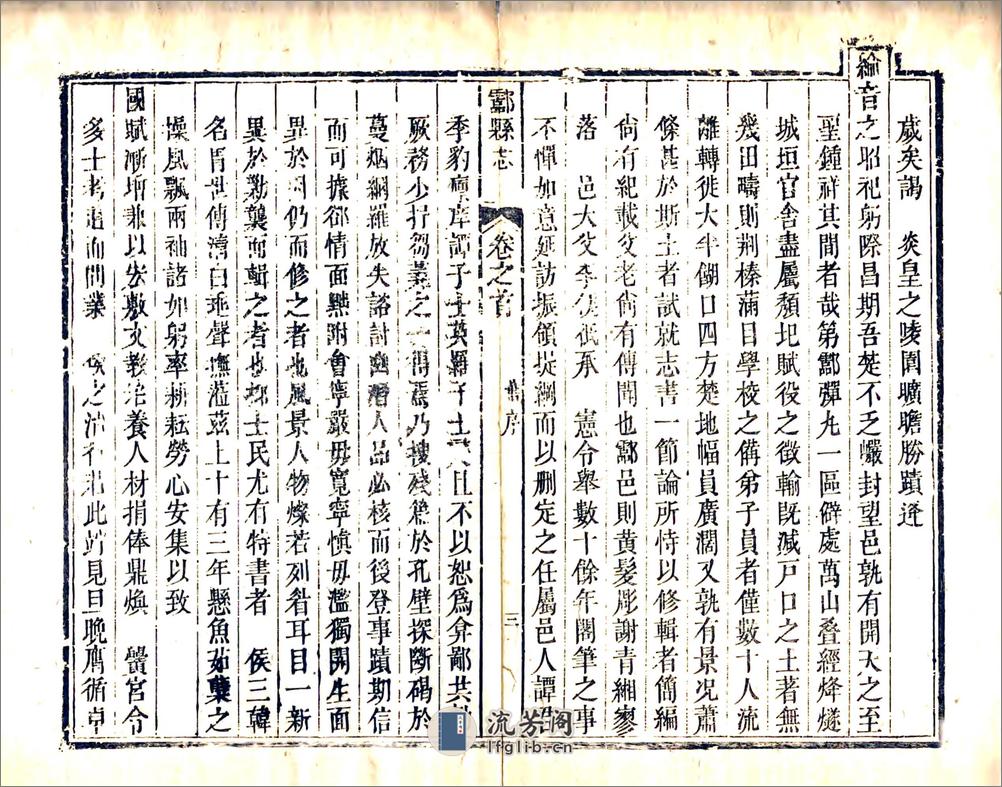 歲矣謁　炎皇之陵園曠瞻勝蹟逢
綸音之昭祀躬際昌期吾楚不乏巗封望邑孰有開天之至
聖鍾祥其間者哉第酃彈丸一區僻處萬山叠經烽燧
城垣官舍盡屬頹圯賦役之徵輸既減戸口之土著無
幾田疇則荆榛蒲目學校之儔弟子員者僅數十人流
離轉徙大半餬口四方楚地幅員廣濶又孰有景况蕭
條甚於斯土者試就志書一節論所恃以修輯者簡編
尙有紀載父老尙有傳聞也酃邑則黄髮彫謝青緗寥
落　邑大父李　祇承　憲令舉數十餘年閣筆之事
不憚如意延訪振領挈綱而以删定之任屬邑人譚
酃縣志
卷之首
舊序
三
季豹　譚子士英羅子士　且不以恕爲弇鄙共
厥務少抒芻蕘之一得焉乃搜殘篇於孔壁探斷碣於
蔓烟網羅放失諮討幽潛人品必核而後登事蹟期信
而可據郤情面黜附會寧嚴毋寬寧愼毋濫獨開生面
異於因仍而修之者也風景人物燦若列眉耳目一新
異於勦襲而輯之者也抑士民尤有特書者　侯三韓
名胄世傳淸白乖聲撫蒞茲土十有三年懸魚茹蘗之
操風飄兩袖諸如躬率耕耘勞心安集以致
國賦漸增兼以宏敷文敎培養人材捐俸鼎煥　黌宮令
多士考道而問業　侯之淸　此　見旦晚膺循卓
流芳阁
lfglib.cn